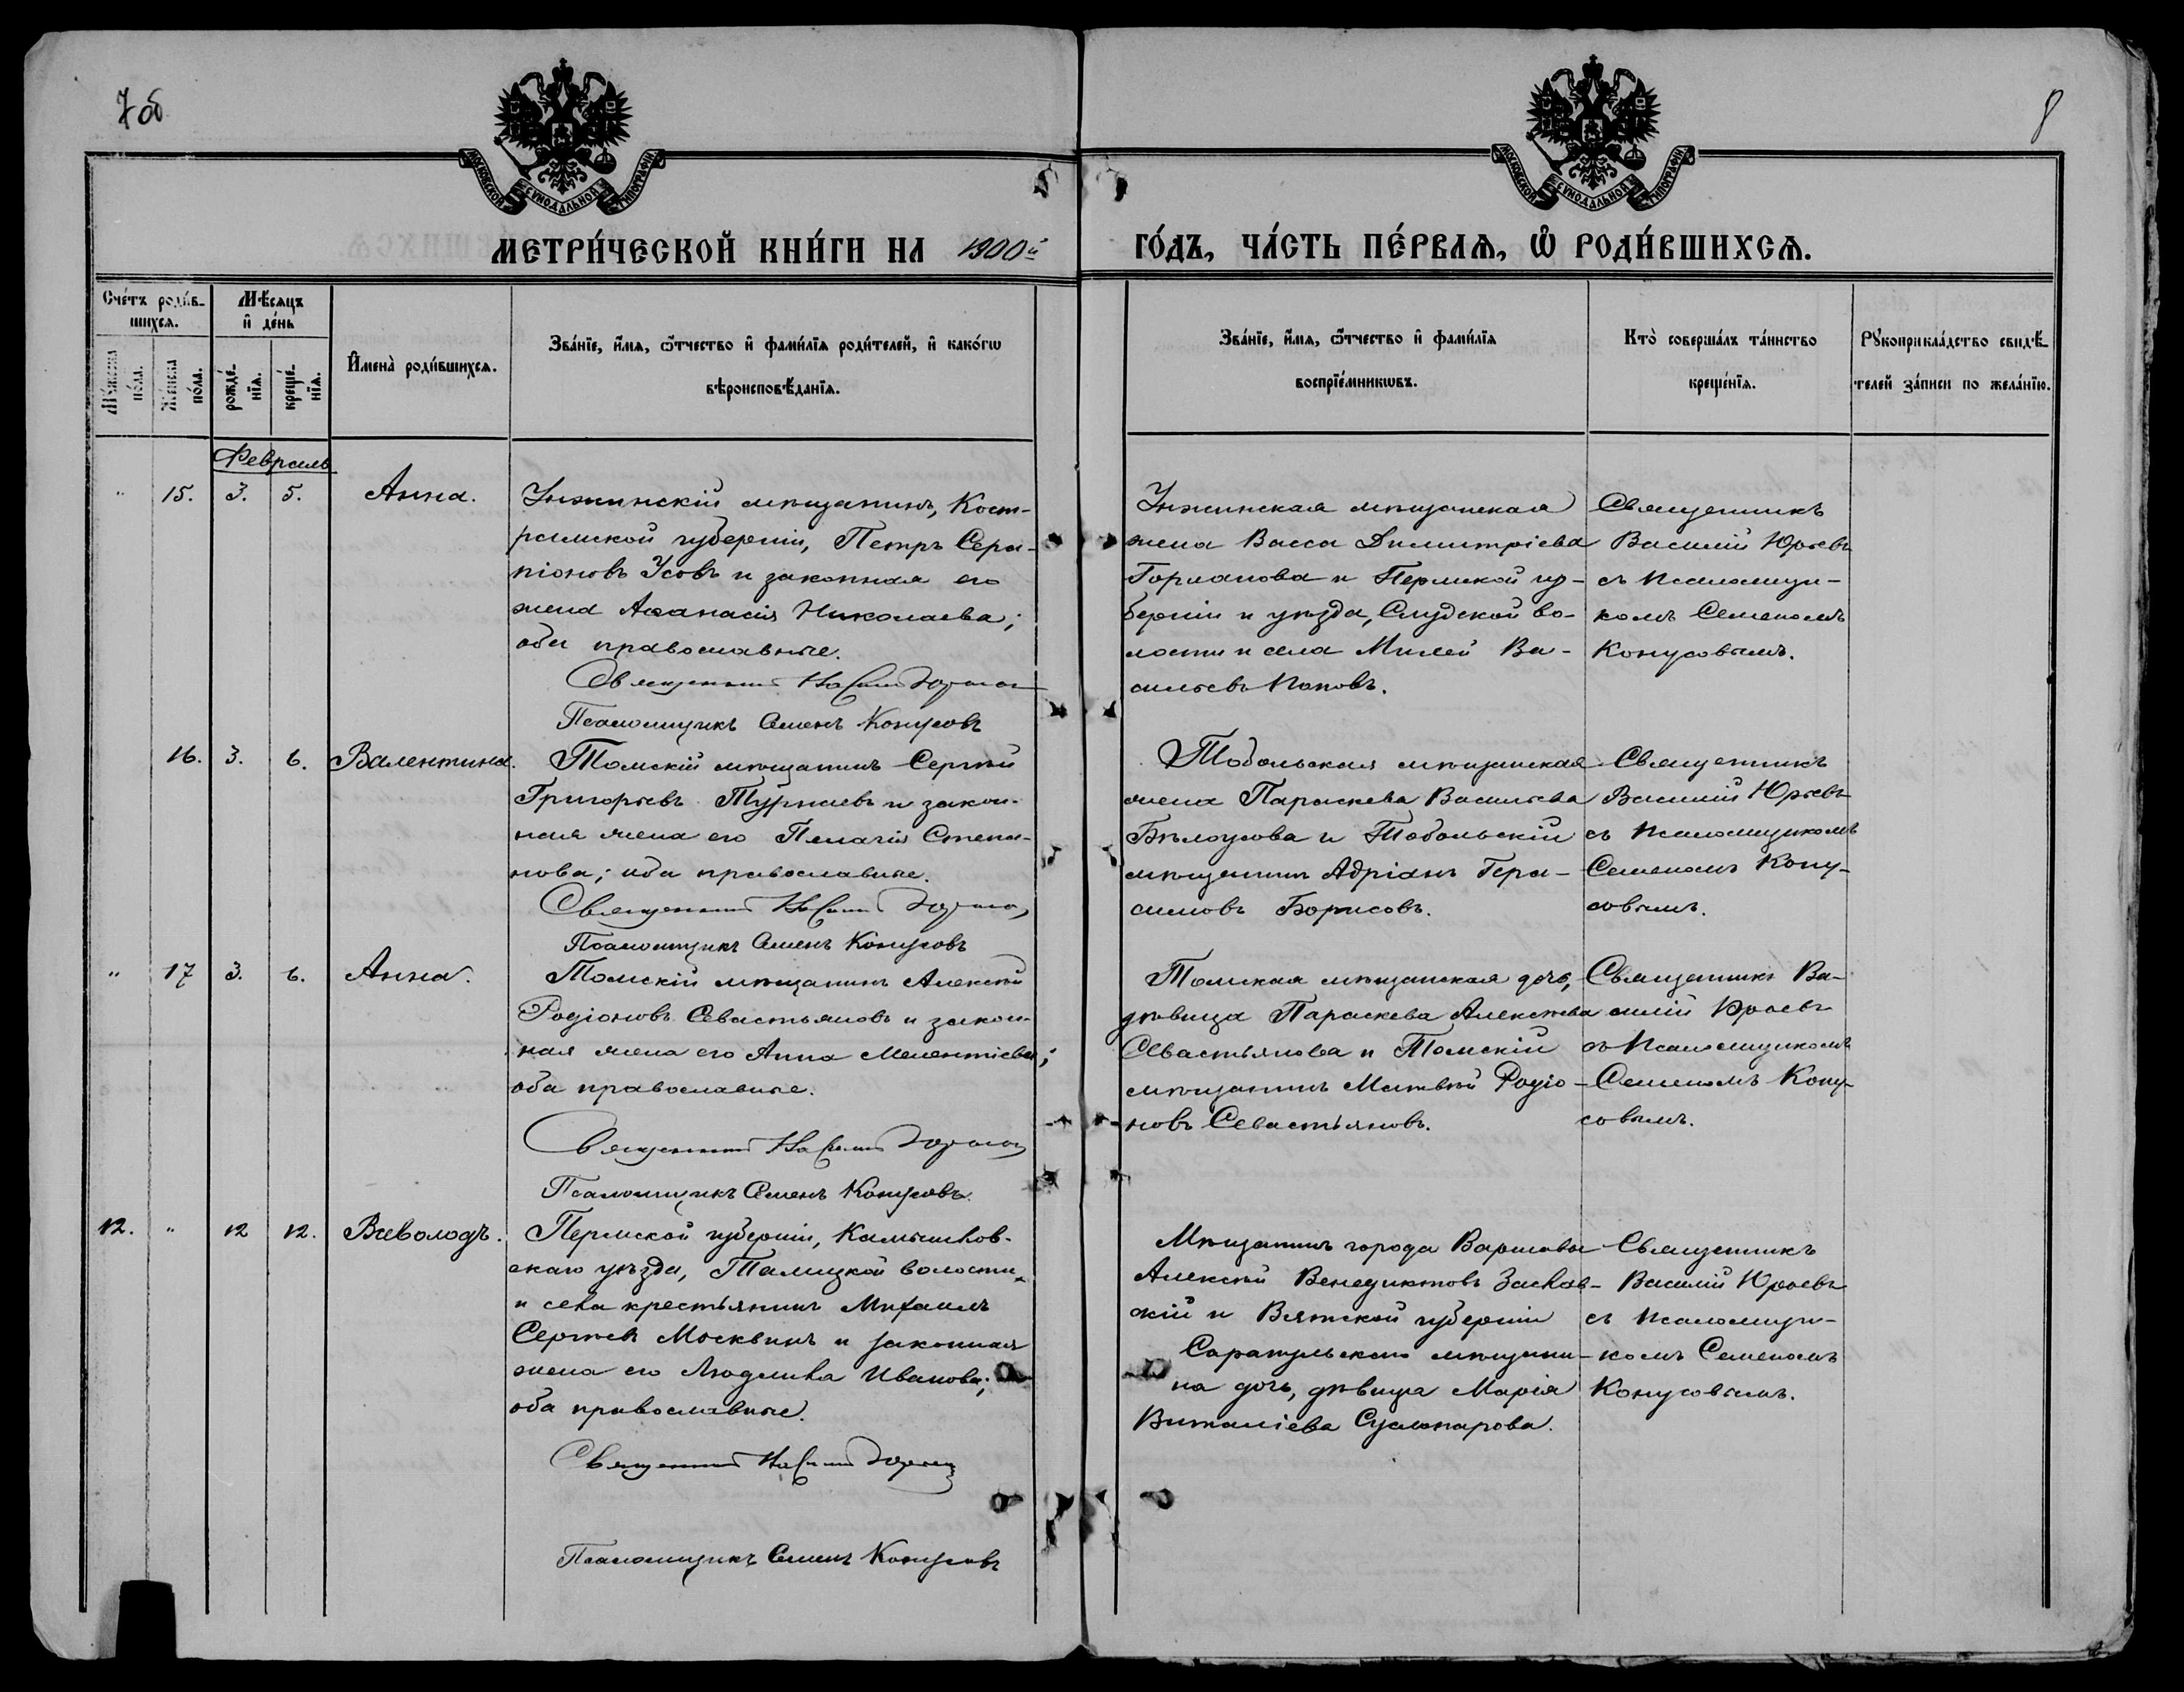 7 об
8
МОСКОВСКОЙ СѴНОДАЛЬНОЙ ТИПОГРАФІИ
МОСКОВСКОЙ СѴНОДАЛЬНОЙ ТИПОГРАФІИ
МЕТРИ́ЧЕСКОЙ КНИ́ГИ НА 1900й ГО́ДЪ, ЧА́СТЬ ПЕ́РВАѦ, Ѡ҆ РОДИ́ВШИХСѦ.
Сче́тъ роди́в-
шихсѧ.
Мꙋ́жеска по́ла.
Же́нска по́ла.
Мѣ́сѧцъ
и҆ де́нь
рожде́-
нїѧ.
креще́-
нїѧ.
И҆мена̀ роди́вшихсѧ.
Зва́нїе, и҆́мѧ, ѻ҆́тчество и҆ фами́лїѧ роди́телей, и҆ како́гѡ
вѣроисповѣ́данїѧ.
Зва́нїе, и҆́мѧ, ѻ҆́тчество и҆ фами́лїѧ
воспрїе́мникѡвъ.
Кто̀ соверша́лъ та́инство
креще́нїѧ.
Рꙋкоприкла́дство свидѣ́-
телей за́писи по жела́нїю.
Февраль
" 15. 3. 5. Анна.
Унжинскій мѣщанинъ, Кост-
ромской губерніи, Петръ Сера-
піоновъ Усовъ и законная его
жена Аѳанасія Николаева;
оба православные.
Священникъ Василій Юрьевъ
Псаломщикъ Семенъ Конусовъ
Унжинская мѣщанская
жена Васса Димитріева
Горланова и Пермской гу-
берніи и уѣзда, Слудской во-
лости и села Милей Ва-
сильевъ Поповъ.
Священникъ
Василій Юрьевъ
съ псаломщи-
комъ Семеномъ
Конусовымъ.
16. 3. 6. Валентина.
Томскій мѣщанинъ Сергѣй
Григорьевъ Турнаевъ и закон-
ная жена его Пелагія Степа-
нова; оба православные.
Священникъ Василій Юрьевъ
Псаломщикъ Семенъ Конусовъ
Тобольская мѣщанская
жена Параскева Васильева
Бѣлоусова и Тобольскій
мѣщанинъ Адріанъ Гера-
симовъ Борисовъ.
Священникъ
Василій Юрьевъ
съ псаломщикомъ
Семеномъ Кону-
совымъ.
" 17 3. 6. Анна.
Томскій мѣщанинъ Алексѣй
Родіоновъ Севастьяновъ и закон-
ная жена его Анна Мелентіева;
оба православные.
Священникъ Василій Юрьевъ
Псаломщикъ Семенъ Конусовъ.
Томская мѣщанская дочь,
дѣвица Параскева Алексѣева
Севастьянова и Томскій
мѣщанинъ Матвѣй Родіо-
новъ Севастьяновъ.
Священникъ Ва-
силій Юрьевъ
съ псаломщикомъ
Семеномъ Кону-
совымъ.
12. " 12 12. Всеволодъ.
Пермской губерніи, Камышлов-
скаго уѣзда, Талицкой волости
и села крестьянинъ Михаилъ
Сергѣевъ Москвинъ и законная
жена его Людмила Иванова;
оба православные.
Священникъ Василій Юрьевъ
Псаломщикъ Семенъ Конусовъ
Мѣщанинъ города Варшавы
Алексѣй Венедиктовъ Заслав-
скій и Вятской губерніи
Сарапульскаго мѣщани-
на дочь, дѣвица Марія
Виталіева Суслопарова.
Священникъ
Василій Юрьевъ
съ псаломщи-
комъ Семеномъ
Конусовымъ.